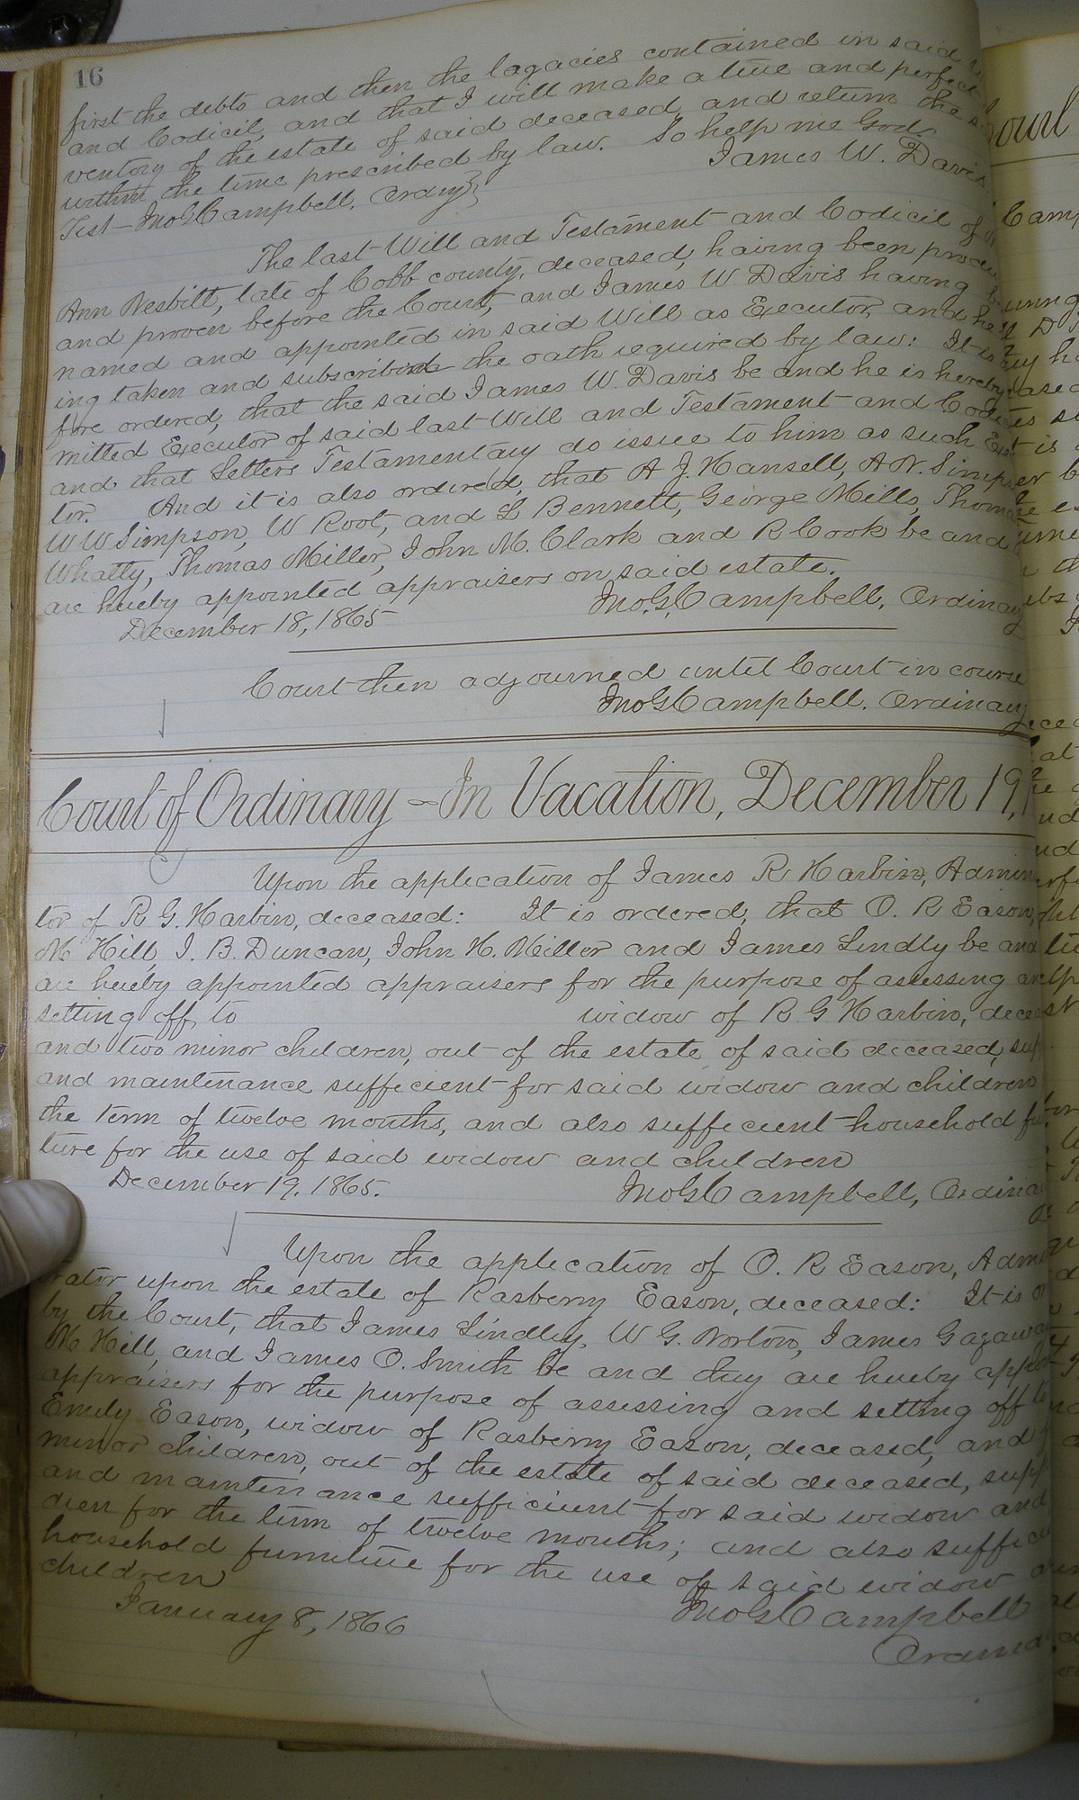 16
first the debts and then the lagacies contained in said
and Codicil, and that I will make a true and perfect
ventory of the estate of said deceased, and return the
within the time prescribed by law. So help me God.
James W. Davis
Test - Jno G Campbell, Ordny}
The last Will and Testament and Codicil of
Ann Nesbitt, late of Cobb county, deceased, having been
and proven before the Court, and James W Davis having
named and appointed in said Will as Executor, and he
ing taken and subscribed the oath required by law: It is
fore ordered, that the said James W. Davis be and he is hereby
mitted Executor of said last Will and Testament and
and that Letters Testamentary do issue to him as such
tor. And it is also ordered, that A J. Hansell, A N. Simpson
W W Simpson, W Root, and L Bennett, George Mills, Thomas
Whatly, Thomas Miller, John M. Clark and R Cook be and
are hereby appointed appraisers on said estate.
Jno. G. Campbell, Ordinary
December 18, 1865
Court then adjourned until Court in course
Jno G Campbell. Ordinary
Court of Ordinary - In Vacation, December 19,
Upon the application of James R Harbin, Admin
tor of R G. Harbin, deceased: It is ordered, that O. R Eason,
M Hill, J. B. Duncan, John H. Miller and James Lindly be and
are hereby appointed appraisers for the purpose of assessing
setting off, to widow of R G Harbin,
and two minor children, out of the estate of said deceased,
and maintenance sufficient for said widow and children
the term of twelve months, and also sufficient household
ture for the use of said widow and children
December 19. 1865. Jno G Campbell,
Upon the application of O. R Eason,
rator upon the estate of Rasberry Eason, deceased: It is
by the Court, that James Lindley, W G. Norton, James
M Hill, and James O. Smith be and they are hereby
appraisers for the purpose of assessing and setting off
Emily Eason, widow of Rasberry Eason, deceased, and
minor children, out of the estate of said deceased,
and maintenance sufficient for said widow and
dren for the term of twelve months; and also
household furniture for the use of said widow
children
January 8, 1866 Jno G Campbell